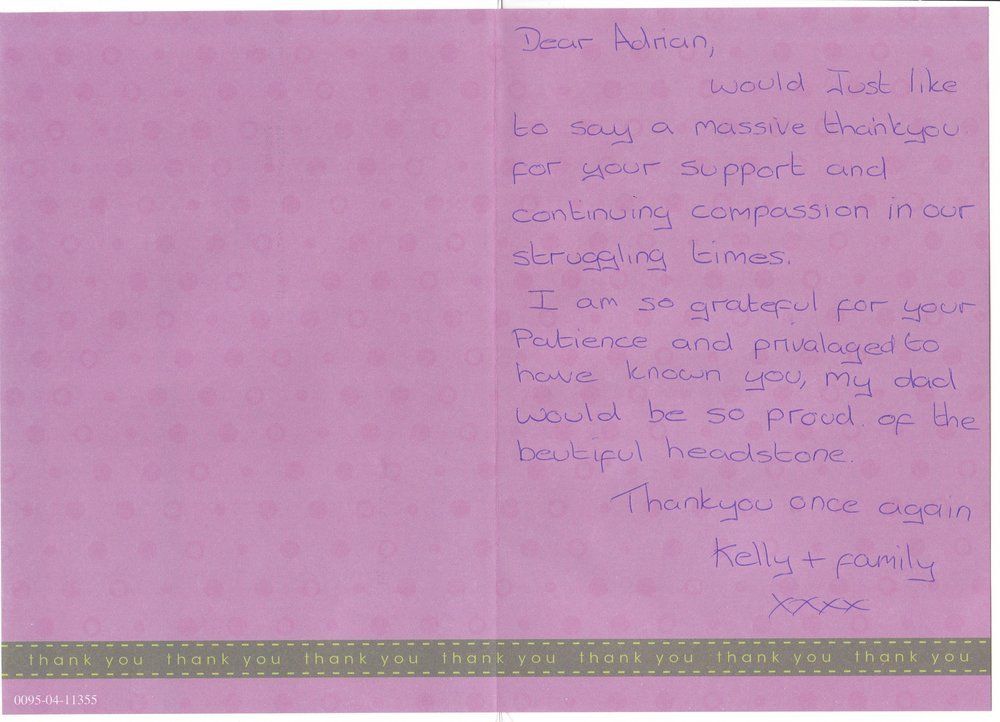 Dear Adrian,
would Just like
to say a massive thankyou
for your support and
continuing compassion in our
struggling times.
I am so grateful for your
Patience and privalaged to
have known you, my dad
would be so proud. of the
beutiful headstone.
Thankyou once again
Kelly + family
xxxx
thank you thank you thank you thank you thank you thank you thank you
0095-04-11355